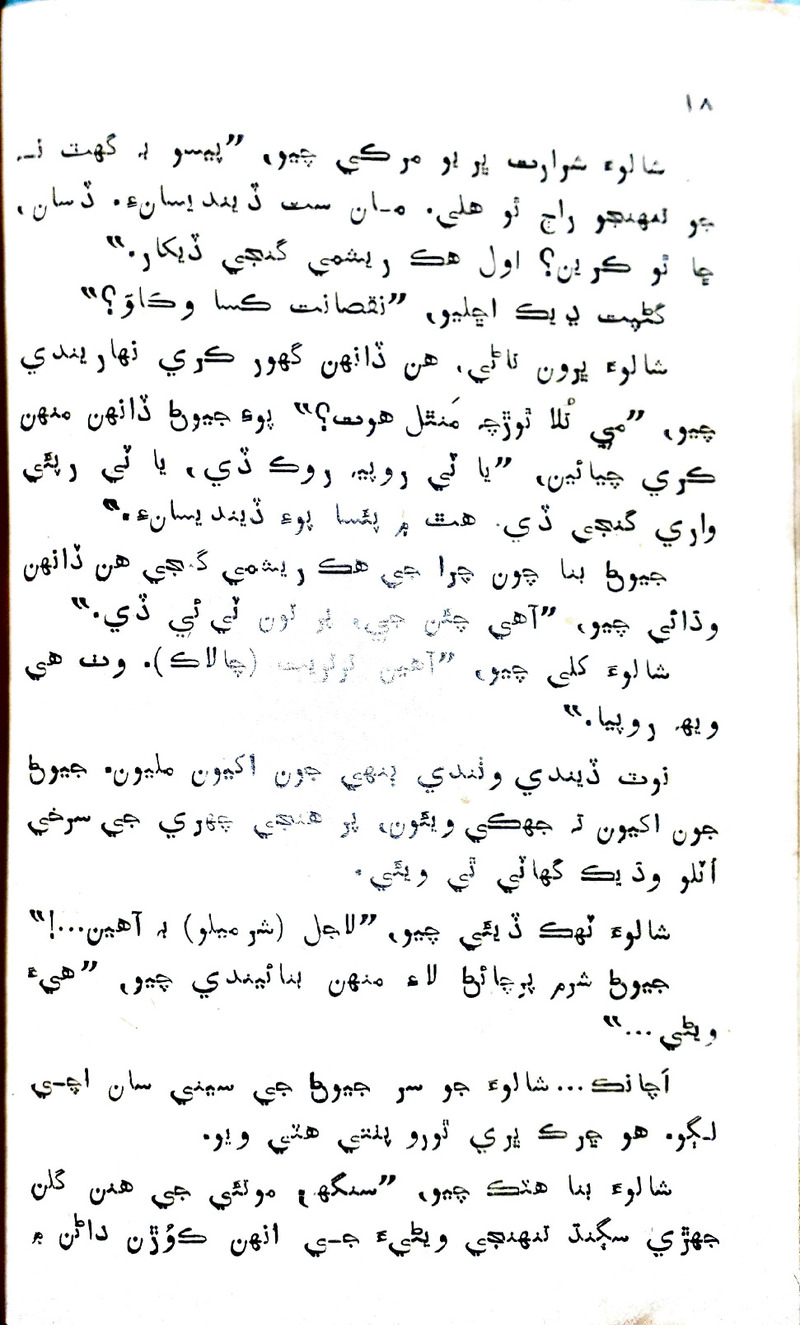 ۱۸
شالوءَ شرارت ڀريو مرڪي چيو، ”پيسو بہ گهٽ نـ،
جو تنهنجو راڄ ٿو هلي. مـان ست ڏينديسانءِ. ڏسان،
ڇا ٿو ڪرين؟ اول هڪ ريشمي گنجي ڏيکار.“
گڻپت ڍيڪ اڇليو، ”نقصانت ڪسا وڪاوَ؟“
شالوءَ ڀرون تاڻي، هن ڏانهن گهور ڪري نهاريندي
چيو، ”مي تُلا ٿوڙچ مَنٿل هوت؟“ پوءِ جيوڻ ڏانهن منهن
ڪري چيائين، ”يا ٽي روپيہ روڪ ڏي، يا ٽي رپئي
واري گنجي ڏي. هٿ ۾ پئسا پوءِ ڏينديسانءِ.“
جيوڻ بنا چون چرا جي هڪ ريشمي گنجي هن ڏانهن
وڌائي چيو، ”آهي چئن جي، پر تون ٽي ئي ڏي.“
شالوءَ کلي چيو، ”آهين ترتريت (چالاڪ). وٺ هي
ويهہ روپيا.“
نوٽ ڏيندي وٺندي ٻنهي جون اکيون مليون. جيوڻ
جون اکيون تہ جهڪي ويئون، پر هنجي چهري جي سرخي
اُٽلو وڌيڪ گهاٽي ٿي ويئي.
شالوءَ ٽهڪ ڏيئي چيو، ”لاجل (شرميلو) بہ آهين...!“
جيوڻ شرم پرچائڻ لاءِ منهن بنائيندي چيو، ”هيءَ
ويڻي...“
اَچانڪ... شالوءَ جو سر جيوڻ جي سيني سان اچـي
لـڳو. هو ڇرڪ ڀري ٿورو پٺتي هٽي ويو.
شالوءَ بنا هٽڪ چيو، ”سنگهہ، موتئي جي هنن گلن
جهڙي سڳنڌ تنهنجي ويڻيءَ جـي انهن ڪوُڙن داڻن ۾